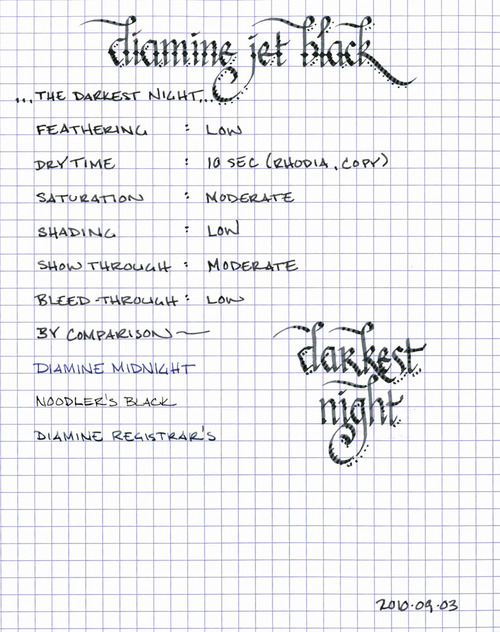 diamine jet black
...THE DARKEST NIGHT...
FEATHERING : LOW
DRY TIME : 10 SEC (RHODIA, COPY)
SATURATION : MODERATE
SHADING : LOW
SHOW THROUGH : MODERATE
BLEED-THROUGH : LOW
BY COMPARISON —
DIAMINE MIDNIGHT
NOODLER'S BLACK
DIAMINE REGISTRAR'S
darkest
night
2010.09.03